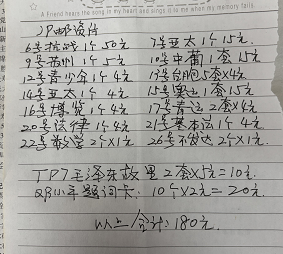 A Friend hears the song in my heart and sings it to me when my memory fails
JP邮资片
6号抗战1个50元 7号亚太1个15元
9号苏州1个5元 10号中葡1套15元
12号青少年1个4元 17号台胞5套X4元
14号亚太1个4元 15号奥运1套15元
16号博览1个4元 17号青运2套4元
20号法律1个4元 21号基本法1个4元
22号数学2个X1元 26号不发达2个X1元
TP7毛泽东故里2套X5元=10元
10个X2元=20元
以上合计:180元